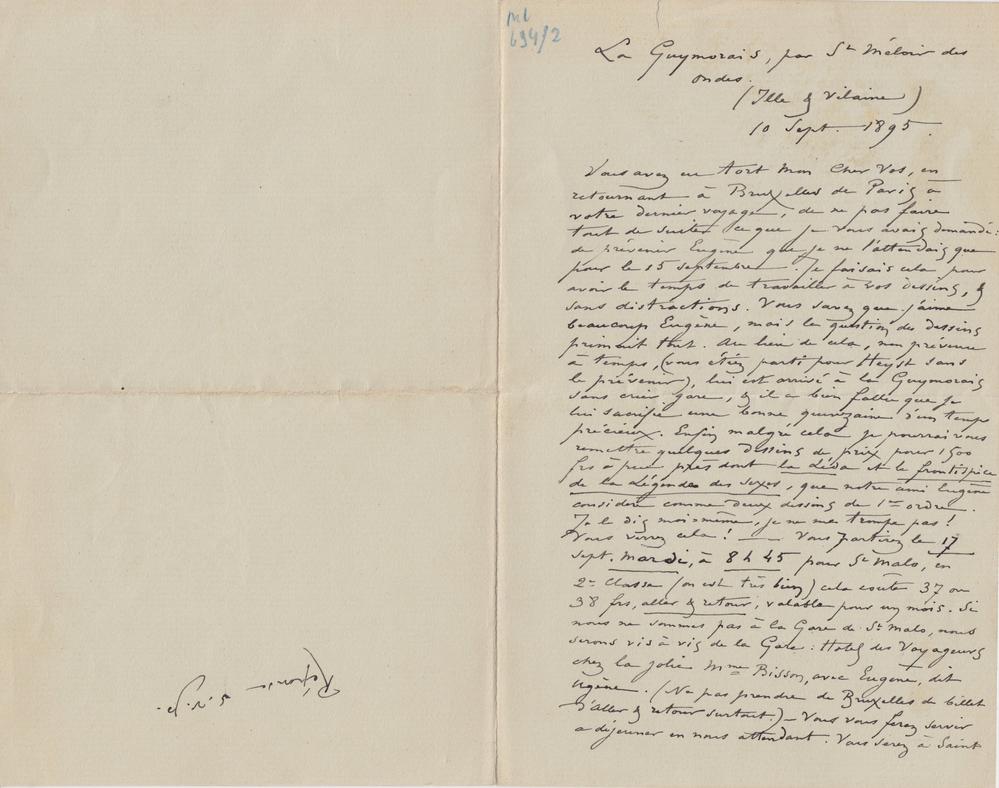 ML
634/2
La Guymorais, par St Méloir des
ondes.
(Ille & Vilaine)
10 Sept. 1895.
Vous avez eu tort mon cher Vos, en
retournant à Bruxelles de Paris à
votre dernier voyage, de ne pas faire
tout de suite ce que je vous avais demandé:
de prévenir Eugène que je ne l'attendais que
pour le 15 septembre. Je faisais cela pour
avoir le temps de travailler à vos dessins, &
sans distractions. Vous savez que j'aime
beaucoup Eugène, mais la question des dessins
primait tout. Au lieu de cela, non prévenu
à temps, (vous étiez parti pour Heyst sans
le prévenir), lui est arrivé à la Guymorais
sans crier gare, & il a bien fallu que je
lui sacrifie une bonne quinzaine d'un temps
précieux. Enfin malgré cela je pourrai vous
remettre quelques dessins de prix pour 1500
frs à peu près dont la Léda et le frontispice
de la Légende des sexes, que notre ami Eugène
considère comme deux dessins de 1er ordre.
Je le dis moi-même, je ne me trompe pas!
Vous verrez cela! — Vous partirez le 17
sept. mardi, à 8 h 45 pour St Malo, en
2e Classe (on est très bien) cela coûte 37 ou
38 frs, aller & retour, valable pour un mois. Si
nous ne sommes pas à la Gare de St Malo, nous
serons vis à vis de la Gare: Hotel des Voyageurs
chez la jolie Mme Bisson, avec Eugène, dit
Ugène. (Ne pas prendre de Bruxelles de billet
d'aller & retour surtout.) — Vous vous ferez servir
à déjeuner en nous attendant. Vous serez à Saint
Réponse — s.v.p.